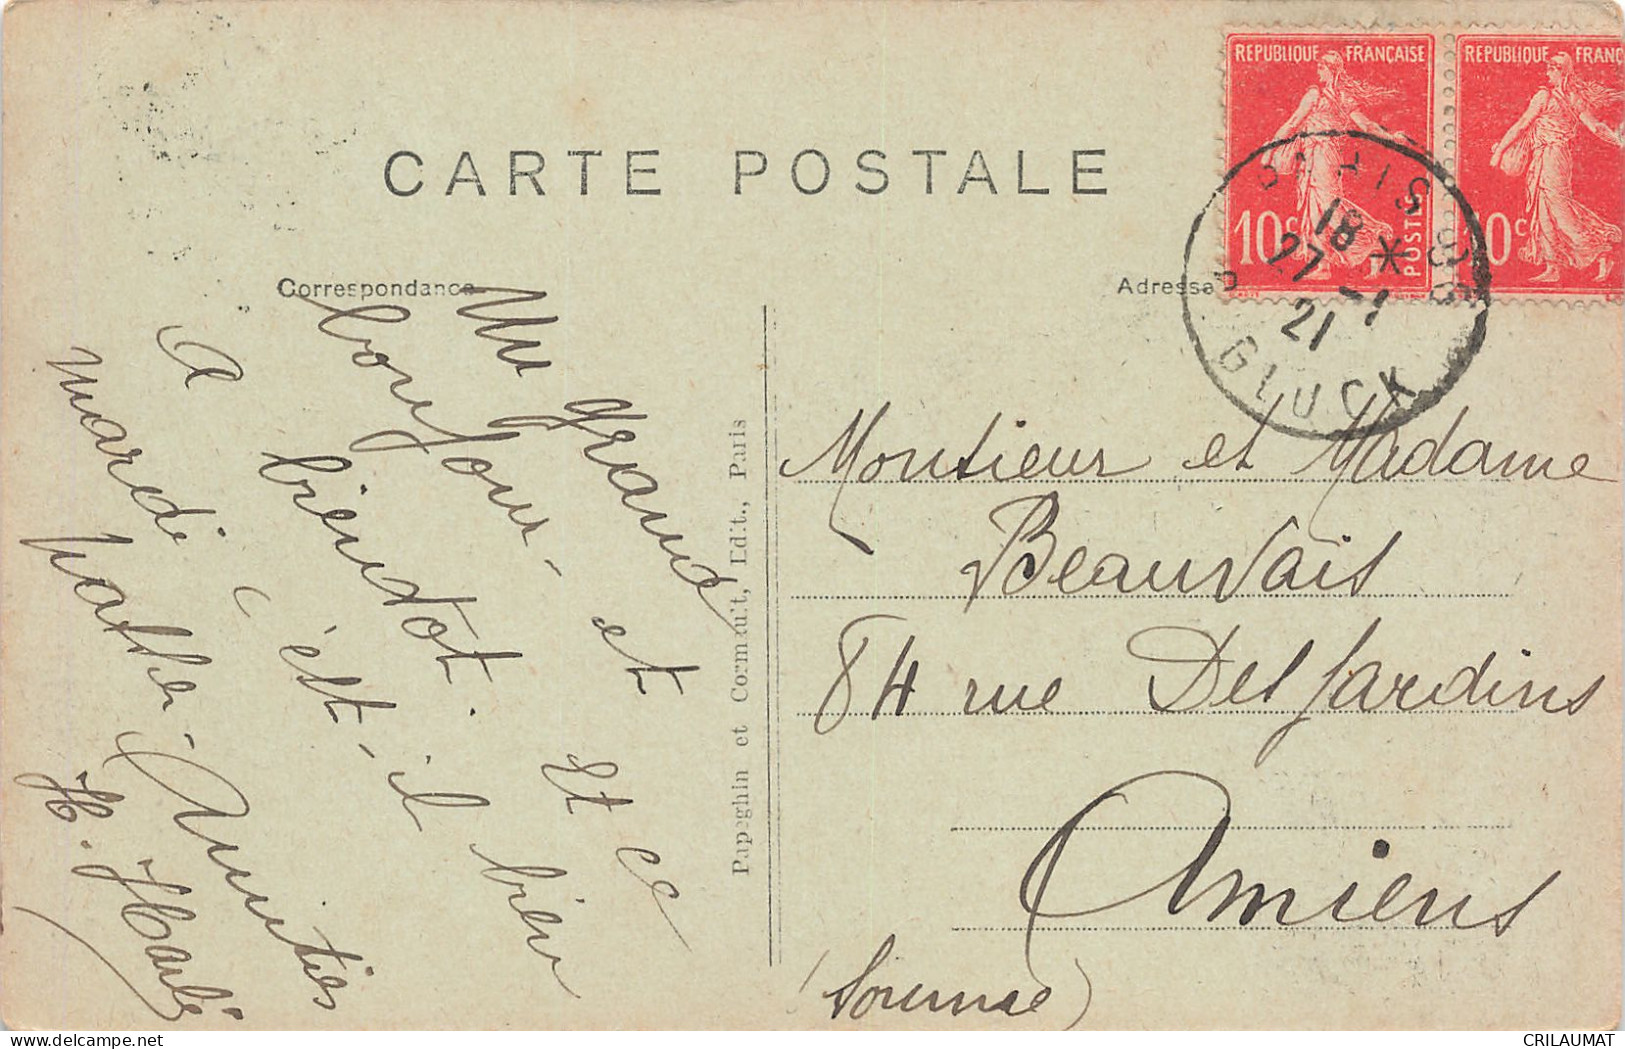 CARTE POSTALE
Correspondance
Adresse
REPUBLIQUE FRANÇAISE
10c
POSTES
REPUBLIQUE FRANÇ
10c
PARIS
18 *
27 -1
21
R GLUCK
Un grand et
bonjour - Et ce
A bientot.
c'est-il bien
mardi
Amitiés
H.
Papeghin et Cormault, Edit., Paris
Monsieur et Madame
Beauvais
84 rue Desjardins
Amiens
(Somme)
CRILAUMAT